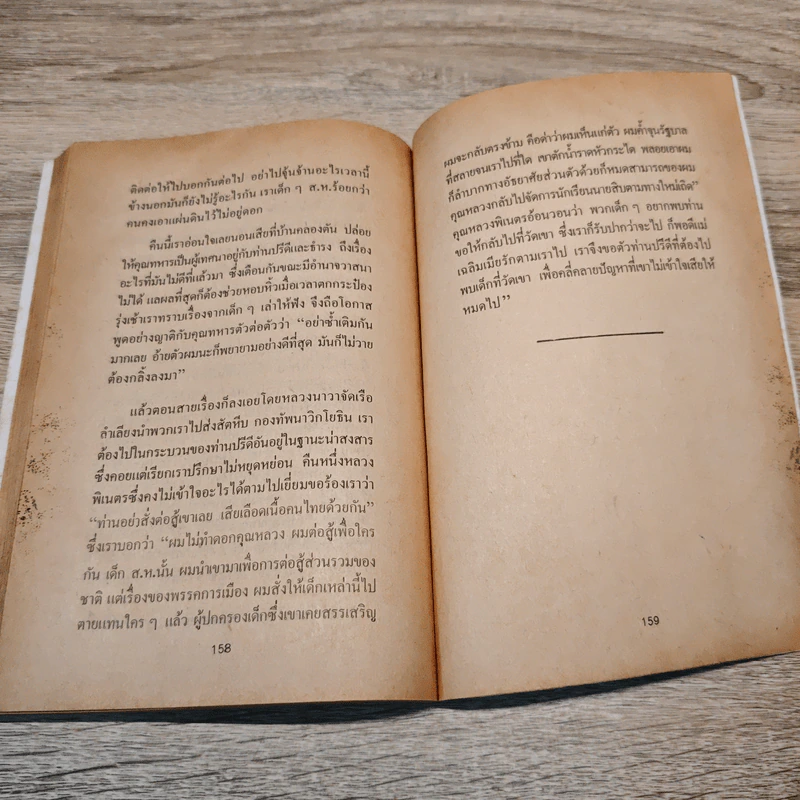 ติดต่อให้ไปบอกกันต่อไป อย่าไปจุ้นจ้านอะไรเวลานี้
ข้างนอกมันก็ยังไม่รู้อะไรกัน เราเด็ก ๆ ส.ห.ร้อยกว่า
คนคงเอาแผ่นดินไว้ไม่อยู่ดอก
คืนนี้เราอ่อนใจเลยนอนเสียที่บ้านคลองตัน ปล่อย
ให้คุณทหารเป็นผู้เทศนาอยู่กับท่านปรีดีและธำรง ถึงเรื่อง
อะไรที่มันไม่ดีที่แล้วมา ซึ่งเตือนกันขณะมีอำนาจวาสนา
ไม่ได้ แลผลที่สุดก็ต้องช่วยหอบหิ้วเมื่อเวลาตกกระป๋อง
รุ่งเช้าเราทราบเรื่องจากเด็ก ๆ เล่าให้ฟัง จึงถือโอกาส
พูดอย่างญาติกับคุณทหารตัวต่อตัวว่า “อย่าซ้ำเติมกัน
มากเลย อ้ายตัวผมนะก็พยายามอย่างดีที่สุด มันก็ไม่วาย
ต้องกลิ้งลงมา”
แล้วตอนสายเรื่องก็ลงเอยโดยหลวงนาวาจัดเรือ
ลำเลียงนำพวกเราไปส่งสัตหีบ กองทัพนาวิกโยธิน เรา
ต้องไปในกระบวนของท่านปรีดีอันอยู่ในฐานะน่าสงสาร
ซึ่งคอยแต่เรียกเราปรึกษาไม่หยุดหย่อน คืนหนึ่งหลวง
พิเนตรซึ่งคงไม่เข้าใจอะไรได้ตามไปเยี่ยมขอร้องเราว่า
“ท่านอย่าสั่งต่อสู้เขาเลย เสียเลือดเนื้อคนไทยด้วยกัน”
ซึ่งเราบอกว่า “ผมไม่ทำดอกคุณหลวง ผมต่อสู้เพื่อใคร
กัน เด็ก ส.ห.นั้น ผมนำเขามาเพื่อการต่อสู้ส่วนรวมของ
ชาติ แต่เรื่องของพรรคการเมือง ผมสั่งให้เด็กเหล่านี้ไป
ตายแทนใคร ๆ แล้ว ผู้ปกครองเด็กซึ่งเขาเคยสรรเสริญ
158
ผมจะกลับตรงข้าม คือด่าว่าผมเห็นแก่ตัว ผมค้ำจุนรัฐบาล
ที่สลายจนเราไปที่ใด เขาตักน้ำราดหัวกระได พลอยเอาผม
ก็ลำบากทางอัธยาศัยส่วนตัวด้วยก็หมดสามารถของผม
คุณหลวงกลับไปจัดการนักเรียนนายสิบตามทางใหม่เถิด”
คุณหลวงพิเนตรอ้อนวอนว่า พวกเด็ก ๆ อยากพบท่าน
ขอให้กลับไปที่วัดเขา ซึ่งเราก็รับปากว่าจะไป ก็พอดีแม่
เฉลิมเมียรักตามเราไป เราจึงขอตัวท่านปรีดีที่ต้องไป
พบเด็กที่วัดเขา เพื่อคลี่คลายปัญหาที่เขาไม่เข้าใจเสียให้
หมดไป”
159